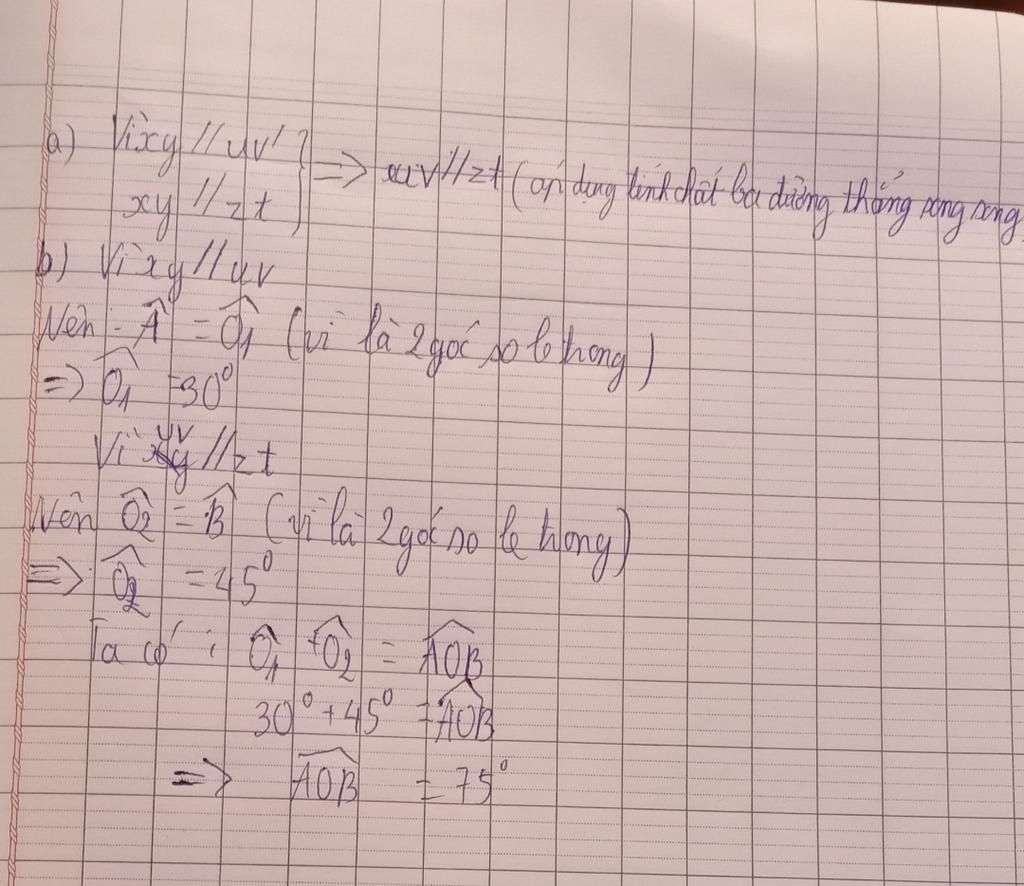 a) Vì xy // uv }
xy // zt } => uv // zt (áp dụng tính chất ba đường thẳng song song
b) Vì xy // uv
Nên Â = Ô1 (vì là 2 góc so le trong)
=> Ô1 = 30°
Vì uv // zt
Nên Ô2 = B̂ (vì là 2 góc so le trong)
=> Ô2 = 45°
Ta có : Ô1 + Ô2 = \widehat{AOB}
30° + 45° = \widehat{AOB}
=> \widehat{AOB} = 75°